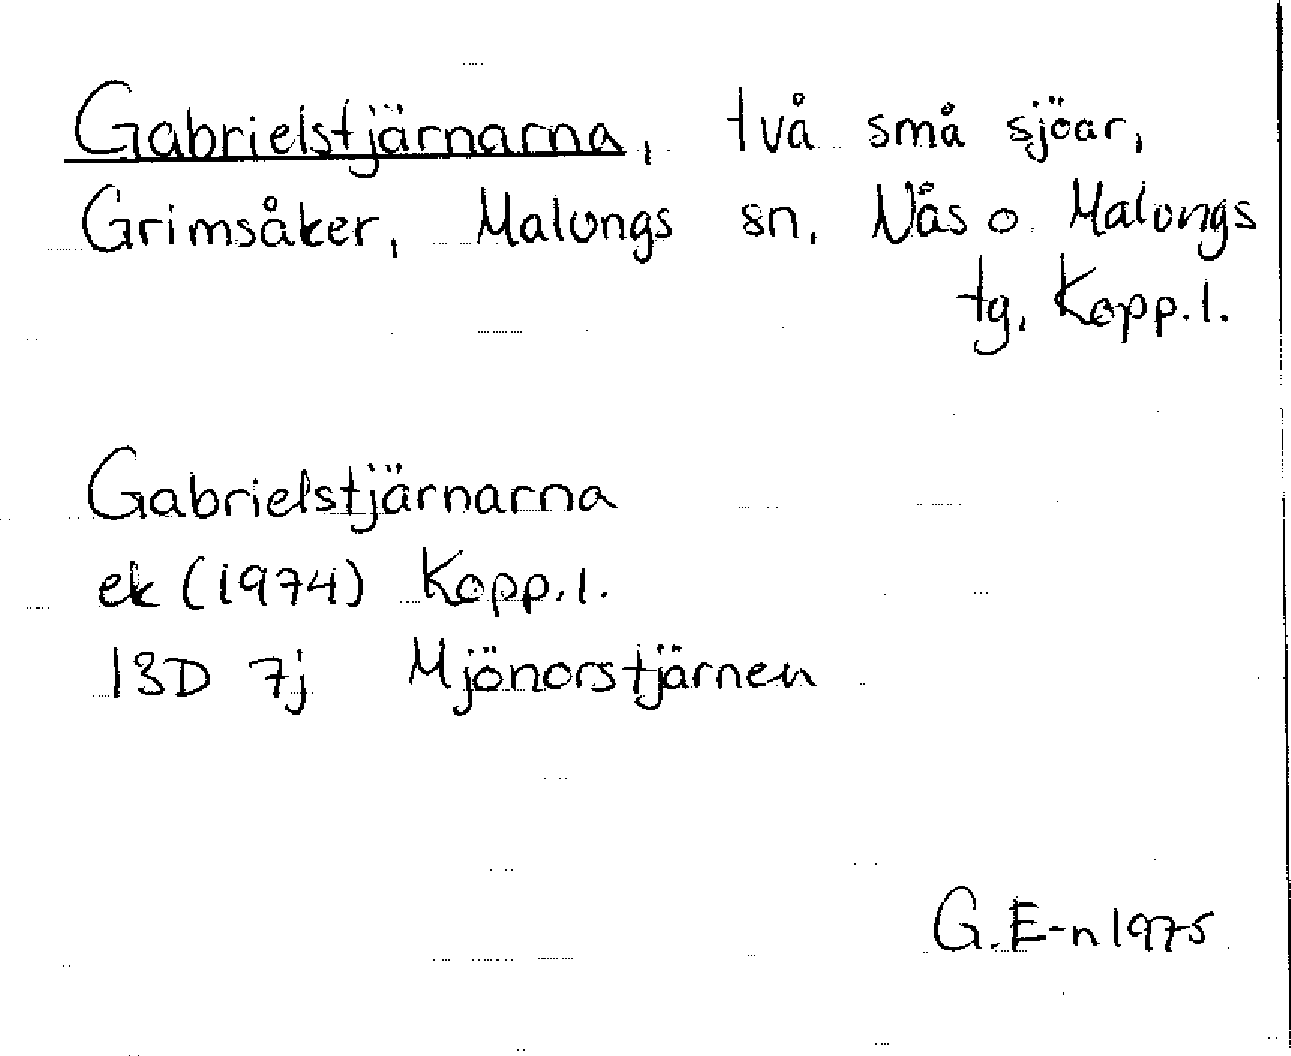 Gabrielstjärnarna, två små sjöar,
Grimsåker, Malungs sn, Nås o Malungs
tg, Kopp.l.
Gabrielstjärnarna
ek (1974) Kopp.l.
13D 7j Mjönorstjärnen
G.E-n 1975